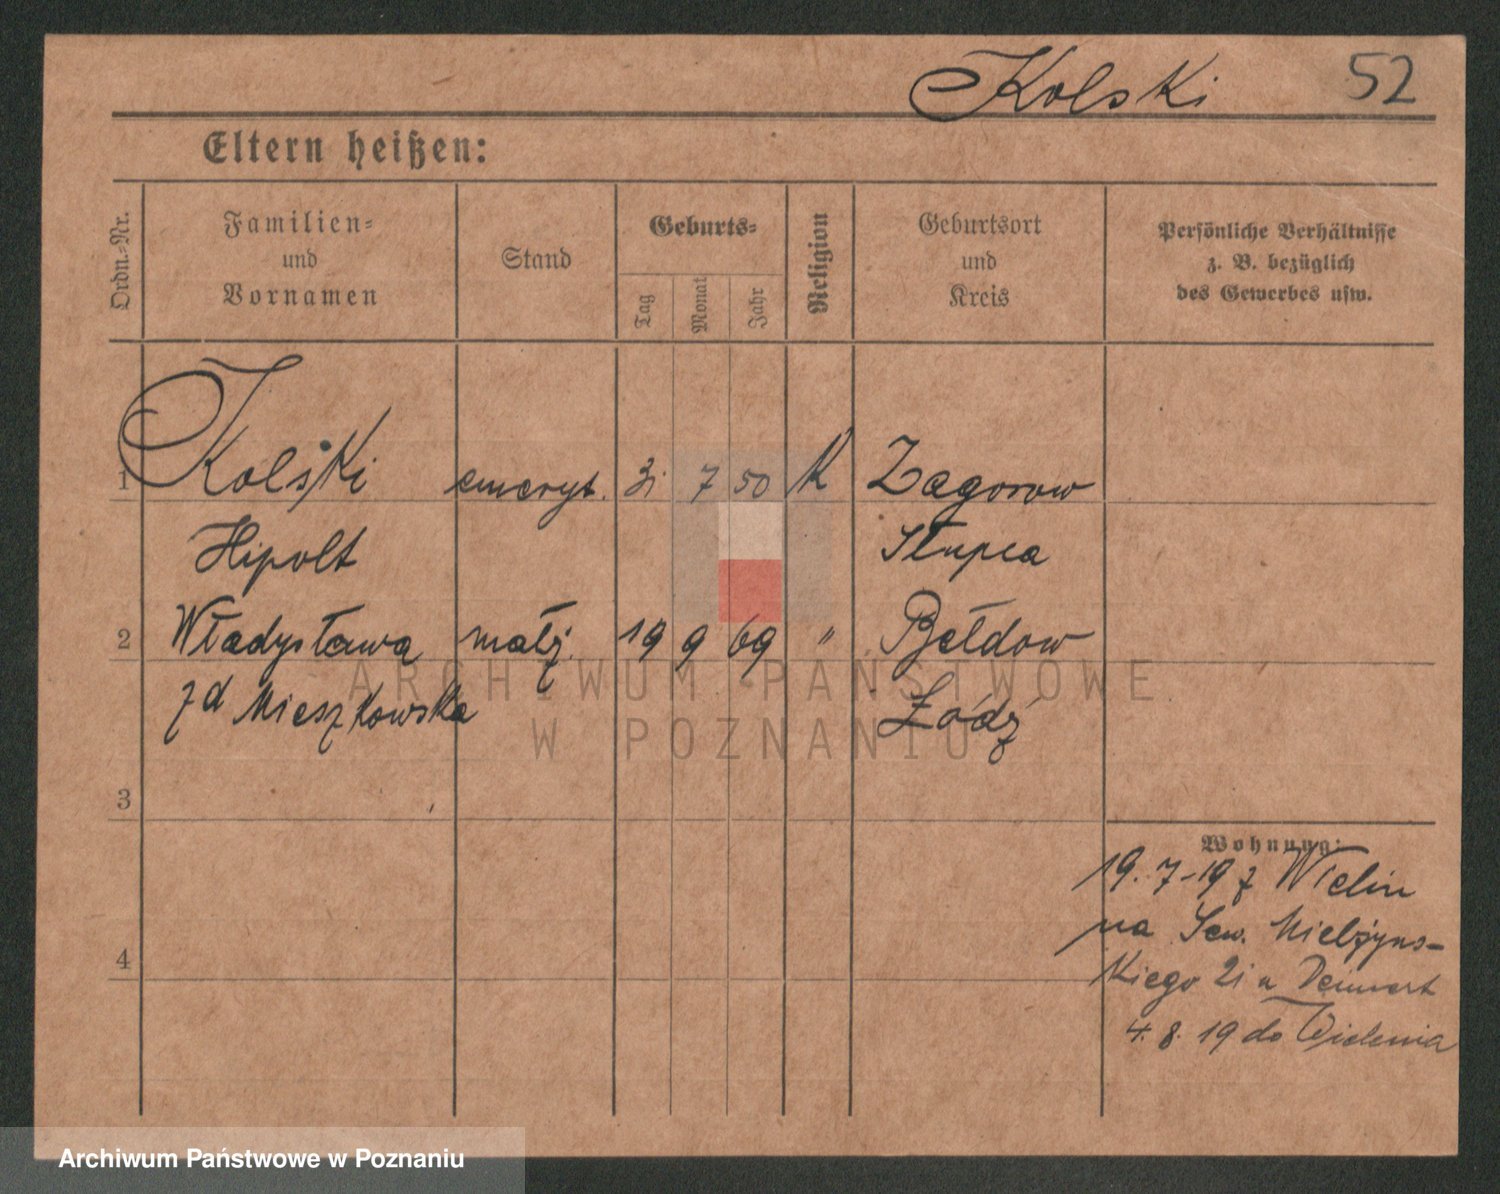 Kolski 52
Eltern heißen:
Ordn.-Nr.
Familien- und Vornamen
Stand
Geburts-
Tag Monat Jahr
Religion
Geburtsort und Kreis
Persönliche Verhältnisse
z. B. bezüglich
des Gewerbes usw.
1 Kolski emeryt. 31 7 50 K Zagorow
Hipolt Słupca
2 Władysława małż. 19 9 69 " Bełdow
zd Mieszkowska Łódź
3
4
Wohnung:
19.7-19 z Wielin
na Sew. Mielżyns-
kiego 21 u
4.8.19 do
ARCHIWUM PAŃSTWOWE
W POZNANIU
Archiwum Państwowe w Poznaniu